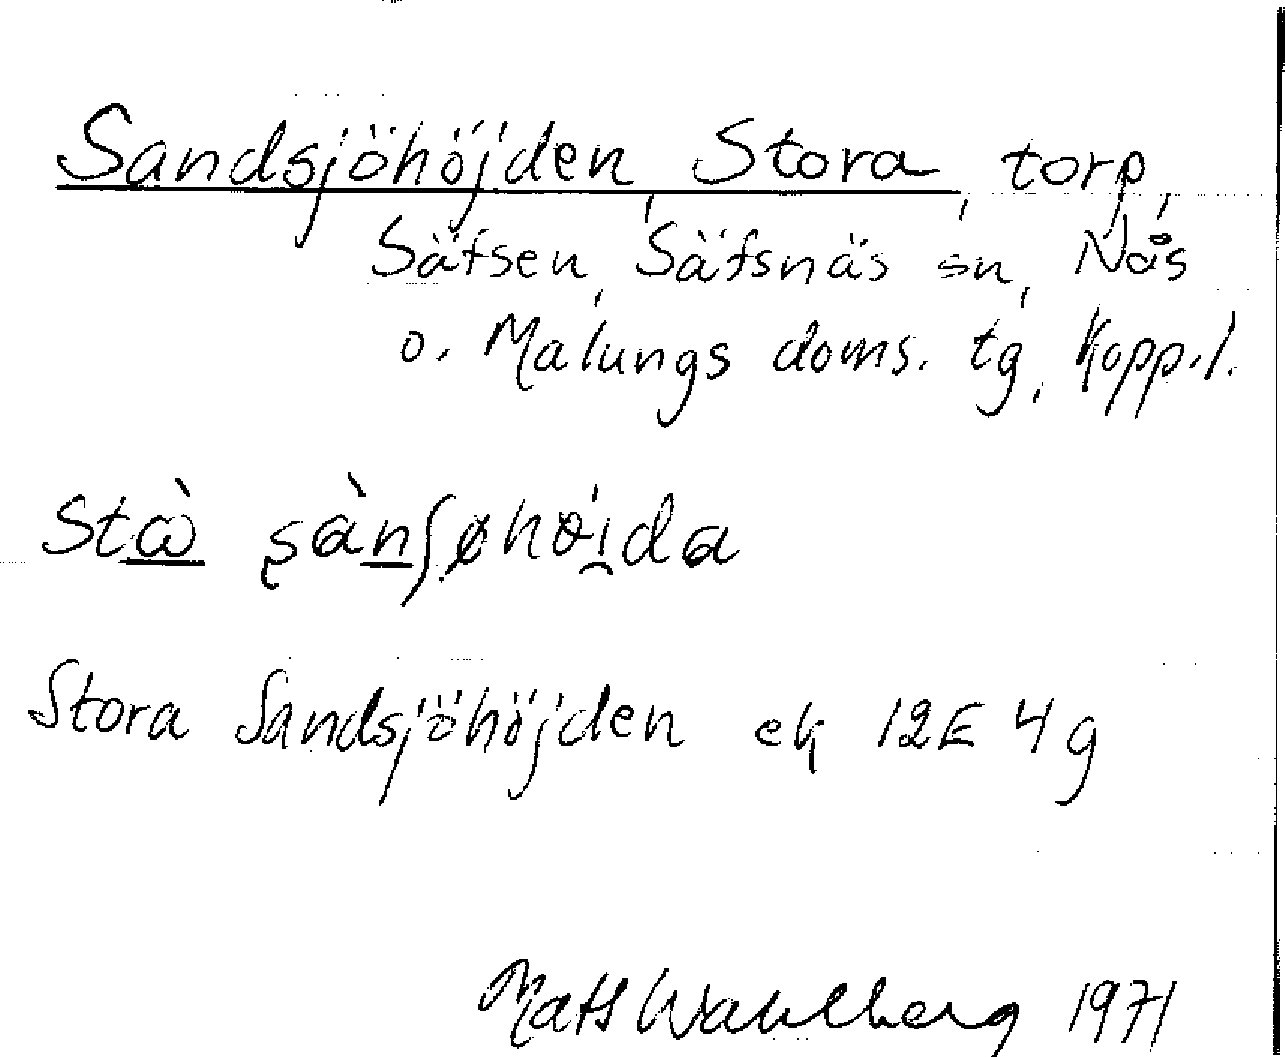 Sandsjöhöjden, Stora, torp,
Säfsen, Säfsnäs sn, Nås
o. Malungs doms. tg, Kopp.l.
Stora Sandsjöhöjden ek 12E 4g
Mats Wahlberg 1971